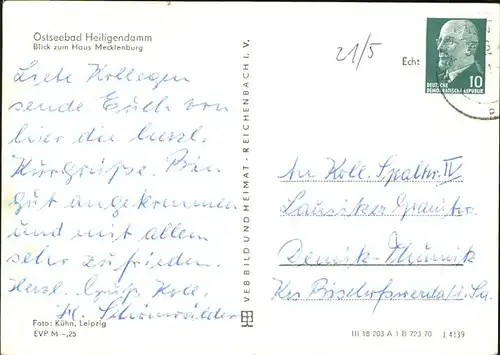 Ostseebad Heiligendamm
Blick zum Haus Mecklenburg
21/5
Echt
10
DEUTSCHE
DEMOKRATISCHE REPUBLIK
Liebe Kollegen
sende Euch von
hier die herzl.
Kurgrüße. Bin
gut angekommen
und mit allem
sehr zufrieden.
Herzl. Gruß Koll.
Schönwälder
VEB BILD UND HEIMAT · REICHENBACH I. V.
An Koll. Spalter IV
Lausitzer Granitw.
Demitz-Thumitz
Krs Bischofswerda i. Sa.
Foto: Kühn, Leipzig
EVP M –,25
III 18 203 A 1 B 723/70 1 4139